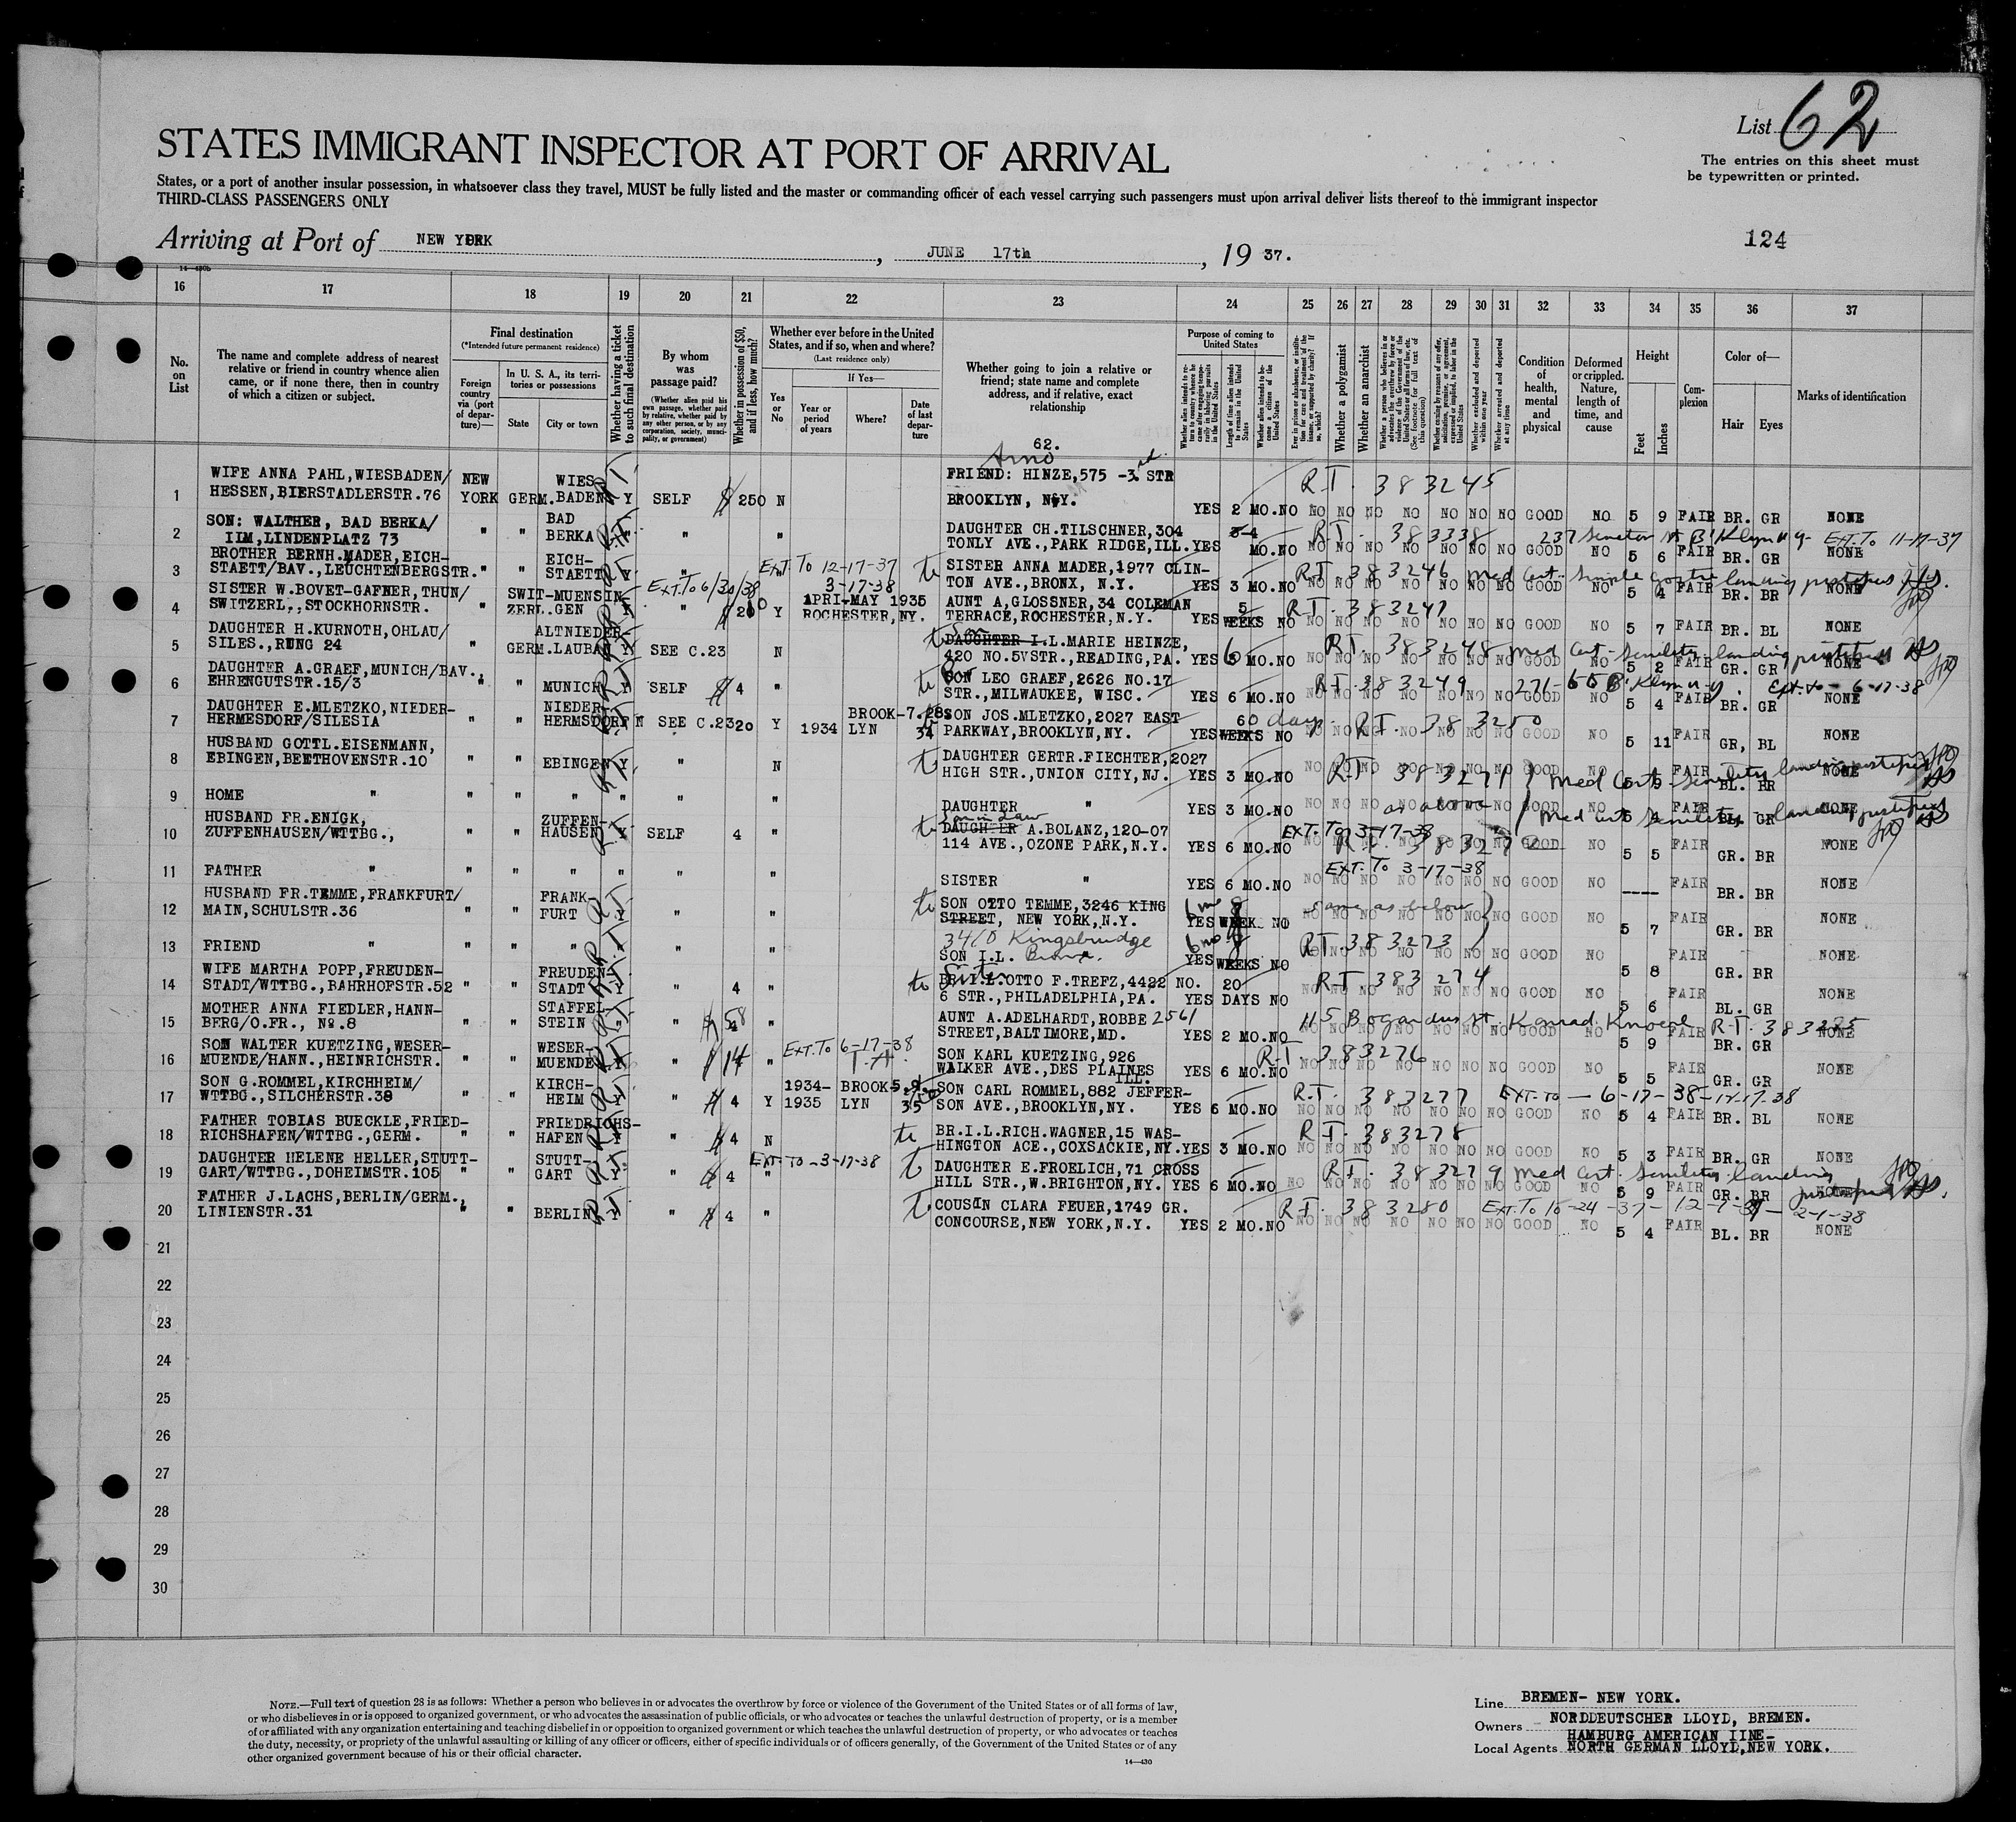 List 62
STATES IMMIGRANT INSPECTOR AT PORT OF ARRIVAL
The entries on this sheet must
be typewritten or printed.
States, or a port of another insular possession, in whatsoever class they travel, MUST be fully listed and the master or commanding officer of each vessel carrying such passengers must upon arrival deliver lists thereof to the immigrant inspector
THIRD-CLASS PASSENGERS ONLY
Arriving at Port of NEW YORK, JUNE 17th, 19 37.
124
14—430b
16 17 18 19 20 21 22 23 24 25 26 27 28 29 30 31 32 33 34 35 36 37
No. on List
The name and complete address of nearest relative or friend in country whence alien came, or if none there, then in country of which a citizen or subject.
Final destination
(*Intended future permanent residence)
Foreign country via (port of departure)—
In U. S. A., its territories or possessions
State City or town
Whether having a ticket to such final destination
By whom was passage paid?
(Whether alien paid his own passage, whether paid by relative, whether paid by any other person, or by any corporation, society, municipality, or government)
Whether in possession of $50, and if less, how much?
Whether ever before in the United States, and if so, when and where?
(Last residence only)
Yes or No
If Yes—
Year or period of years Where? Date of last departure
Whether going to join a relative or friend; state name and complete address, and if relative, exact relationship
62.
Purpose of coming to United States
Length of time alien intends to remain in the United States
Whether alien intends to become a citizen of the United States
Whether a polygamist
Whether an anarchist
Whether excluded and deported within one year
Whether arrested and deported at any time
Condition of health, mental and physical
Deformed or crippled. Nature, length of time, and cause
Height
Feet Inches
Complexion
Color of—
Hair Eyes
Marks of identification
1 WIFE ANNA PAHL,WIESBADEN/ NEW WIES- Arno FRIEND: HINZE,575 -3rd. STR R.T. 383245
HESSEN,BIERSTADLERSTR.76 YORK GERM. BADEN Y SELF 250 N BROOKLYN, NY. YES 2 MO. NO NO NO NO NO NO NO NO GOOD NO 5 9 FAIR BR. GR NONE
2 SON: WALTHER, BAD BERKA/ BAD DAUGHTER CH.TILSCHNER,304 R.T. 383338 EXT. TO 11-17-37
IIM,LINDENPLATZ 73 " " BERKA " " " TONLY AVE.,PARK RIDGE,ILL. YES MO.NO NO NO NO NO NO NO NO GOOD NO 5 6 FAIR BR. GR NONE
3 BROTHER BERNH.MADER,EICH- EICH- EXT. TO 12-17-37 to SISTER ANNA MADER,1977 CLIN- R.T. 383246 Med Cert. landing
STAETT/BAV.,LEUCHTENBERGSTR. " " STAETT Y " " 3-17-38 TON AVE.,BRONX, N.Y. YES 3 MO.NO NO NO NO NO NO NO NO GOOD NO 5 4 FAIR BR. BR NONE
4 SISTER W.BOVET-GAFNER,THUN/ SWIT- MUENSIN- EXT. TO 6/30/38 APRI-MAY 1935 AUNT A,GLOSSNER,34 COLEMAN 5 R.T. 383247
SWITZERL.,STOCKHORNSTR. " ZERL. GEN " 20 Y ROCHESTER,NY. TERRACE,ROCHESTER,N.Y. YES WEEKS NO NO NO NO NO NO NO NO GOOD NO 5 7 FAIR BR. BL NONE
5 DAUGHTER H.KURNOTH,OHLAU/ ALTNIEDER- to DAUGHTER I.L.MARIE HEINZE, R.T. 383248 Med Cert. Senility landing
SILES.,RUNG 24 " GERM. LAUBAN Y SEE C.23 N 420 NO.5 STR.,READING,PA. YES 6 MO.NO NO NO NO NO NO NO NO GOOD NO 5 2 FAIR GR. GR NONE
6 DAUGHTER A.GRAEF,MUNICH/BAV., to SON LEO GRAEF,2626 NO.17 R.T. 383249 Ext. to 6-17-38
EHRENGUTSTR.15/3 " " MUNICH Y SELF 4 " STR.,MILWAUKEE, WISC. YES 6 MO.NO NO NO NO NO NO NO NO GOOD NO 5 4 FAIR BR. GR NONE
7 DAUGHTER E.MLETZKO,NIEDER- NIEDER- BROOK- 7.28. SON JOS.MLETZKO,2027 EAST 60 days R.T. 383250
HERMESDORF/SILESIA " " HERMSDORF N SEE C.23 20 Y 1934 LYN 34 PARKWAY,BROOKLYN,NY. YES WEEKS NO NO NO NO NO NO NO NO GOOD NO 5 11 FAIR GR, BL NONE
8 HUSBAND GOTTL.EISENMANN, to DAUGHTER GERTR.FIECHTER,2027 R.T. 383271
EBINGEN,BEETHOVENSTR.10 " " EBINGEN Y " N HIGH STR.,UNION CITY,NJ. YES 3 MO.NO NO NO NO NO NO NO NO GOOD NO 5 5 FAIR BL. BR NONE Med Cert. Senility landing
9 HOME " " " " " " " DAUGHTER " YES 3 MO.NO NO NO as above NO GOOD NO 5 4 FAIR BL. GR NONE Med Cert Senility landing
10 HUSBAND FR.ENIGK, ZUFFEN- to Son in Law DAUGHTER A.BOLANZ,120-07 EXT. TO 3-17-38
ZUFFENHAUSEN/WTTBG., " " HAUSEN Y SELF 4 " 114 AVE.,OZONE PARK,N.Y. YES 6 MO.NO R.T. 383272 NO GOOD NO 5 5 FAIR GR. BR NONE
11 FATHER " " " " " " " SISTER " YES 6 MO.NO EXT. TO 3-17-38 NO NO NO NO NO NO NO GOOD NO ---- FAIR BR. BR NONE
12 HUSBAND FR.TEMME,FRANKFURT/ FRANK- to SON OTTO TEMME,3246 KING 6 mo 8 same as below
MAIN,SCHULSTR.36 " " FURT Y " " STREET, NEW YORK,N.Y. YES WEEK NO NO NO NO NO NO NO NO GOOD NO 5 7 FAIR GR. BR NONE
13 FRIEND " " " " " " 3410 Kingsbridge 6 mo 8 R.T. 383273
SON I.L. Bronx. YES WEEKS NO NO NO NO NO NO NO NO GOOD NO 5 8 FAIR GR. BR NONE
14 WIFE MARTHA POPP,FREUDEN- FREUDEN- to Sister BR.I.L.OTTO F.TREFZ,4422 NO. 20 R.T. 383274
STADT/WTTBG.,BAHRHOFSTR.52 " " STADT Y " 4 " 6 STR.,PHILADELPHIA,PA. YES DAYS NO NO NO NO NO NO NO NO GOOD NO 5 6 FAIR BL. GR NONE
15 MOTHER ANNA FIEDLER,HANN- STAFFEL- AUNT A.ADELHARDT,ROBBE 2561 115 Bogardus St. R.T. 383275
BERG/O.FR., No.8 " " STEIN " 58 " STREET,BALTIMORE,MD. YES 2 MO.NO NO NO NO NO NO NO NO GOOD NO 5 9 FAIR BR. GR NONE
16 SON WALTER KUETZING,WESER- WESER- EXT. TO 6-17-38 SON KARL KUETZING,926 R.T. 383276
MUENDE/HANN.,HEINRICHSTR. " " MUENDE " 14 " WALKER AVE.,DES PLAINES ILL. YES 6 MO.NO NO NO NO NO NO NO NO GOOD NO 5 5 FAIR GR. GR NONE
17 SON G.ROMMEL,KIRCHHEIM/ KIRCH- 1934- BROOK- 5.9. SON CARL ROMMEL,882 JEFFER- R.T. 383277 EXT. TO — 6-17-38-12.17.38
WTTBG.,SILCHERSTR.38 " " HEIM Y " 4 Y 1935 LYN 35 SON AVE.,BROOKLYN,NY. YES 6 MO.NO NO NO NO NO NO NO NO GOOD NO 5 4 FAIR BR. BL NONE
18 FATHER TOBIAS BUECKLE,FRIED- FRIEDRICHS- to BR.I.L.RICH.WAGNER,15 WAS- R.T. 383278
RICHSHAFEN/WTTBG.,GERM. " " HAFEN Y " 4 N HINGTON ACE.,COXSACKIE,NY. YES 3 MO.NO NO NO NO NO NO NO NO GOOD NO 5 3 FAIR BR. GR NONE
19 DAUGHTER HELENE HELLER,STUTT- STUTT- EXT. TO -3-17-38 to DAUGHTER E.FROELICH,71 CROSS R.T. 383279 Med Cert. Senility landing
GART/WTTBG.,DOHEIMSTR.105 " " GART Y " 4 " HILL STR.,W.BRIGHTON,NY. YES 6 MO.NO NO NO NO NO NO NO NO GOOD NO 5 9 FAIR GR. BR NONE
20 FATHER J.LACHS,BERLIN/GERM., to COUSIN CLARA FEUER,1749 GR. R.T. 383280 EXT. TO 10-24-37- 12-7-37- 2-1-38
LINIENSTR.31 " " BERLIN Y " 4 " CONCOURSE,NEW YORK,N.Y. YES 2 MO.NO NO NO NO NO NO NO NO GOOD NO 5 4 FAIR BL. BR NONE
21
22
23
24
25
26
27
28
29
30
NOTE.—Full text of question 28 is as follows: Whether a person who believes in or advocates the overthrow by force or violence of the Government of the United States or of all forms of law,
or who disbelieves in or is opposed to organized government, or who advocates the assassination of public officials, or who advocates or teaches the unlawful destruction of property, or is a member
of or affiliated with any organization entertaining and teaching disbelief in or opposition to organized government or which teaches the unlawful destruction of property, or who advocates or teaches
the duty, necessity, or propriety of the unlawful assaulting or killing of any officer or officers, either of specific individuals or of officers generally, of the Government of the United States or of any
other organized government because of his or their official character.
14—430
Line BREMEN- NEW YORK.
Owners NORDDEUTSCHER LLOYD, BREMEN.
HAMBURG AMERICAN LINE-
Local Agents NORTH GERMAN LLOYD,NEW YORK.